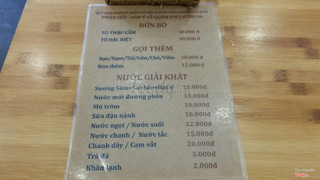 BÚN BÒ
TÔ THẬP CẨM 30.000 đ
TÔ ĐẶC BIỆT
GỌI THÊM
20.000 đ
Bún thêm 15.000 đ
NƯỚC GIẢI KHÁT
Sương Sâm 10.000đ
Nước mát đường phèn 10.000đ
Mủ trôm 10.000đ
Sữa đậu nành 10.000đ
Nước ngọt / Nước suối 12.000đ
Nước chanh / Nước tắc 15.000đ
Chanh dây / Cam vắt 20.000đ
Trà đá 3.000đ
Khăn lạnh 2.000đ